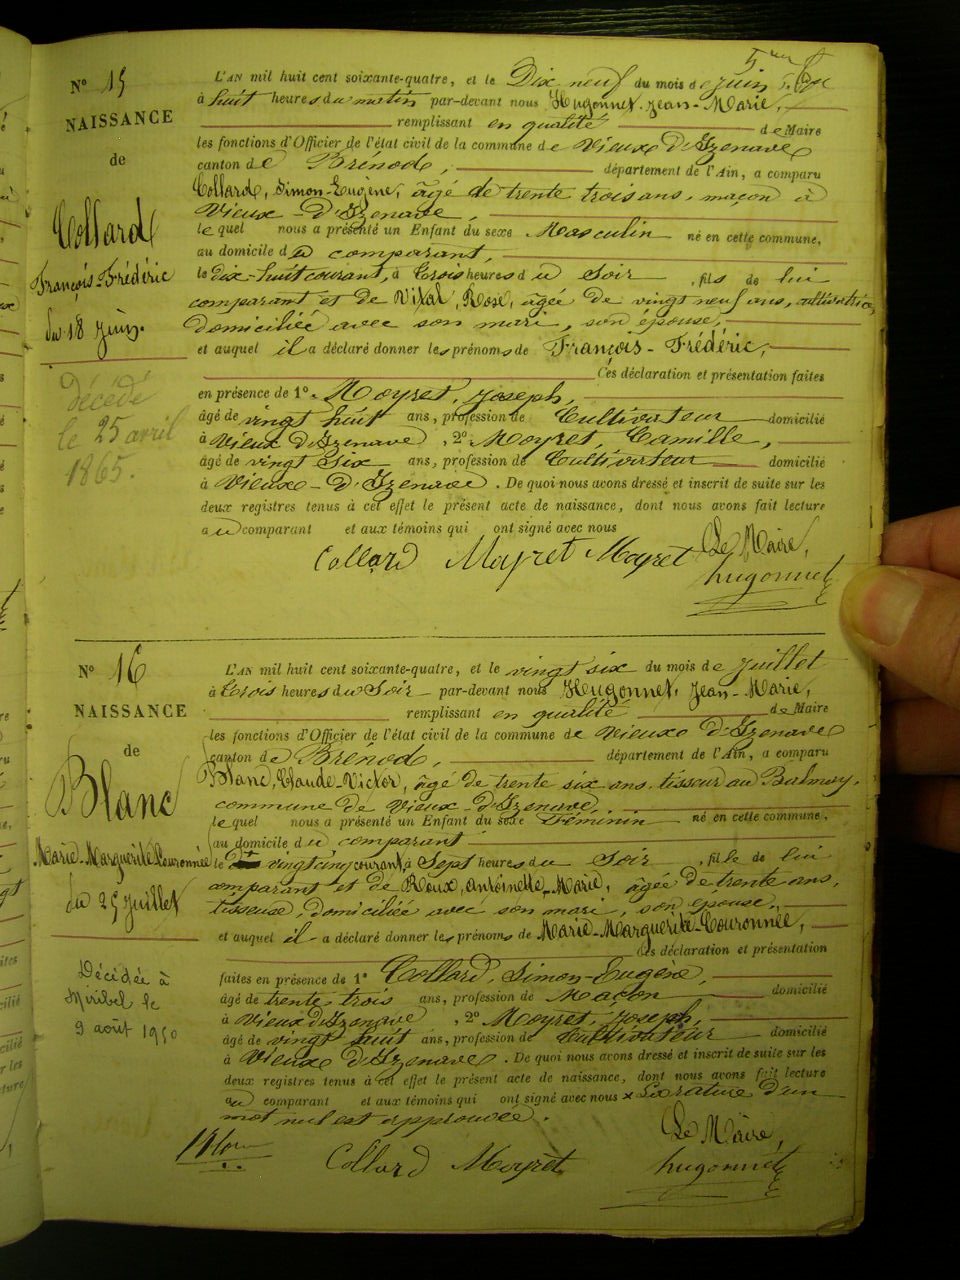 5me f
N° 15
NAISSANCE
de
Collard
François-Frédéric
du 18 juin.
décédé
le 25 avril
1865.
L'AN mil huit cent soixante-quatre, et le Dix neuf du mois de juin
à huit heures du matin par-devant nous Hugonnet, Jean-Marie,
remplissant en qualité de Maire
les fonctions d'Officier de l'état civil de la commune de Vieux d'Izenave
canton de Brénod, département de l'Ain, a comparu
Collard, Simon-Eugène, âgé de trente trois ans, maçon à
Vieux-d'Izenave,
lequel nous a présenté un Enfant du sexe Masculin né en cette commune,
au domicile du comparant,
le dix-huit courant, à trois heures du soir, fils de lui
comparant et de Vital, Rose, âgée de vingt neuf ans, cultivatrice,
domiciliée avec son mari, son épouse,
et auquel il a déclaré donner les prénoms de François-Frédéric,
Ces déclaration et présentation faites
en présence de 1° Moyret, Joseph,
âgé de vingt huit ans, profession de Cultivateur domicilié
à Vieux d'Izenave, 2° Moyret, Camille,
âgé de vingt six ans, profession de Cultivateur domicilié
à Vieux-d'Izenave. De quoi nous avons dressé et inscrit de suite sur les
deux registres tenus à cet effet le présent acte de naissance, dont nous avons fait lecture
au comparant et aux témoins qui ont signé avec nous
Collard Moyret Moyret Le Maire,
hugonnet
N° 16
NAISSANCE
de
Blanc
Marie-Marguerite-Couronnée
du 25 juillet
Décédée à
Miribel le
9 août 1950
L'AN mil huit cent soixante-quatre, et le vingt six du mois de juillet
à trois heures du soir par-devant nous Hugonnet, Jean-Marie,
remplissant en qualité de Maire
les fonctions d'Officier de l'état civil de la commune de Vieux d'Izenave
canton de Brénod, département de l'Ain, a comparu
Blanc, Claude-Victor, âgé de trente six ans, tisseur au Balmay,
commune de Vieux-d'Izenave,
lequel nous a présenté un Enfant du sexe Féminin né en cette commune,
au domicile du comparant
le vingt cinq courant, à sept heures du soir, fille de lui
comparant et de Roux, Antoinette-Marie, âgée de trente ans,
tisseuse, domiciliée avec son mari, son épouse,
et auquel il a déclaré donner les prénoms de Marie-Marguerite-Couronnée,
Ces déclaration et présentation
faites en présence de 1° Collard, Simon-Eugène,
âgé de trente trois ans, profession de Maçon domicilié
à Vieux d'Izenave, 2° Moyret, Joseph,
âgé de vingt huit ans, profession de Cultivateur domicilié
à Vieux d'Izenave. De quoi nous avons dressé et inscrit de suite sur les
deux registres tenus à cet effet le présent acte de naissance, dont nous avons fait lecture
au comparant et aux témoins qui ont signé avec nous × La rature d'un
mot nul est approuvée.
Le Maire,
Blanc Collard Moyret hugonnet